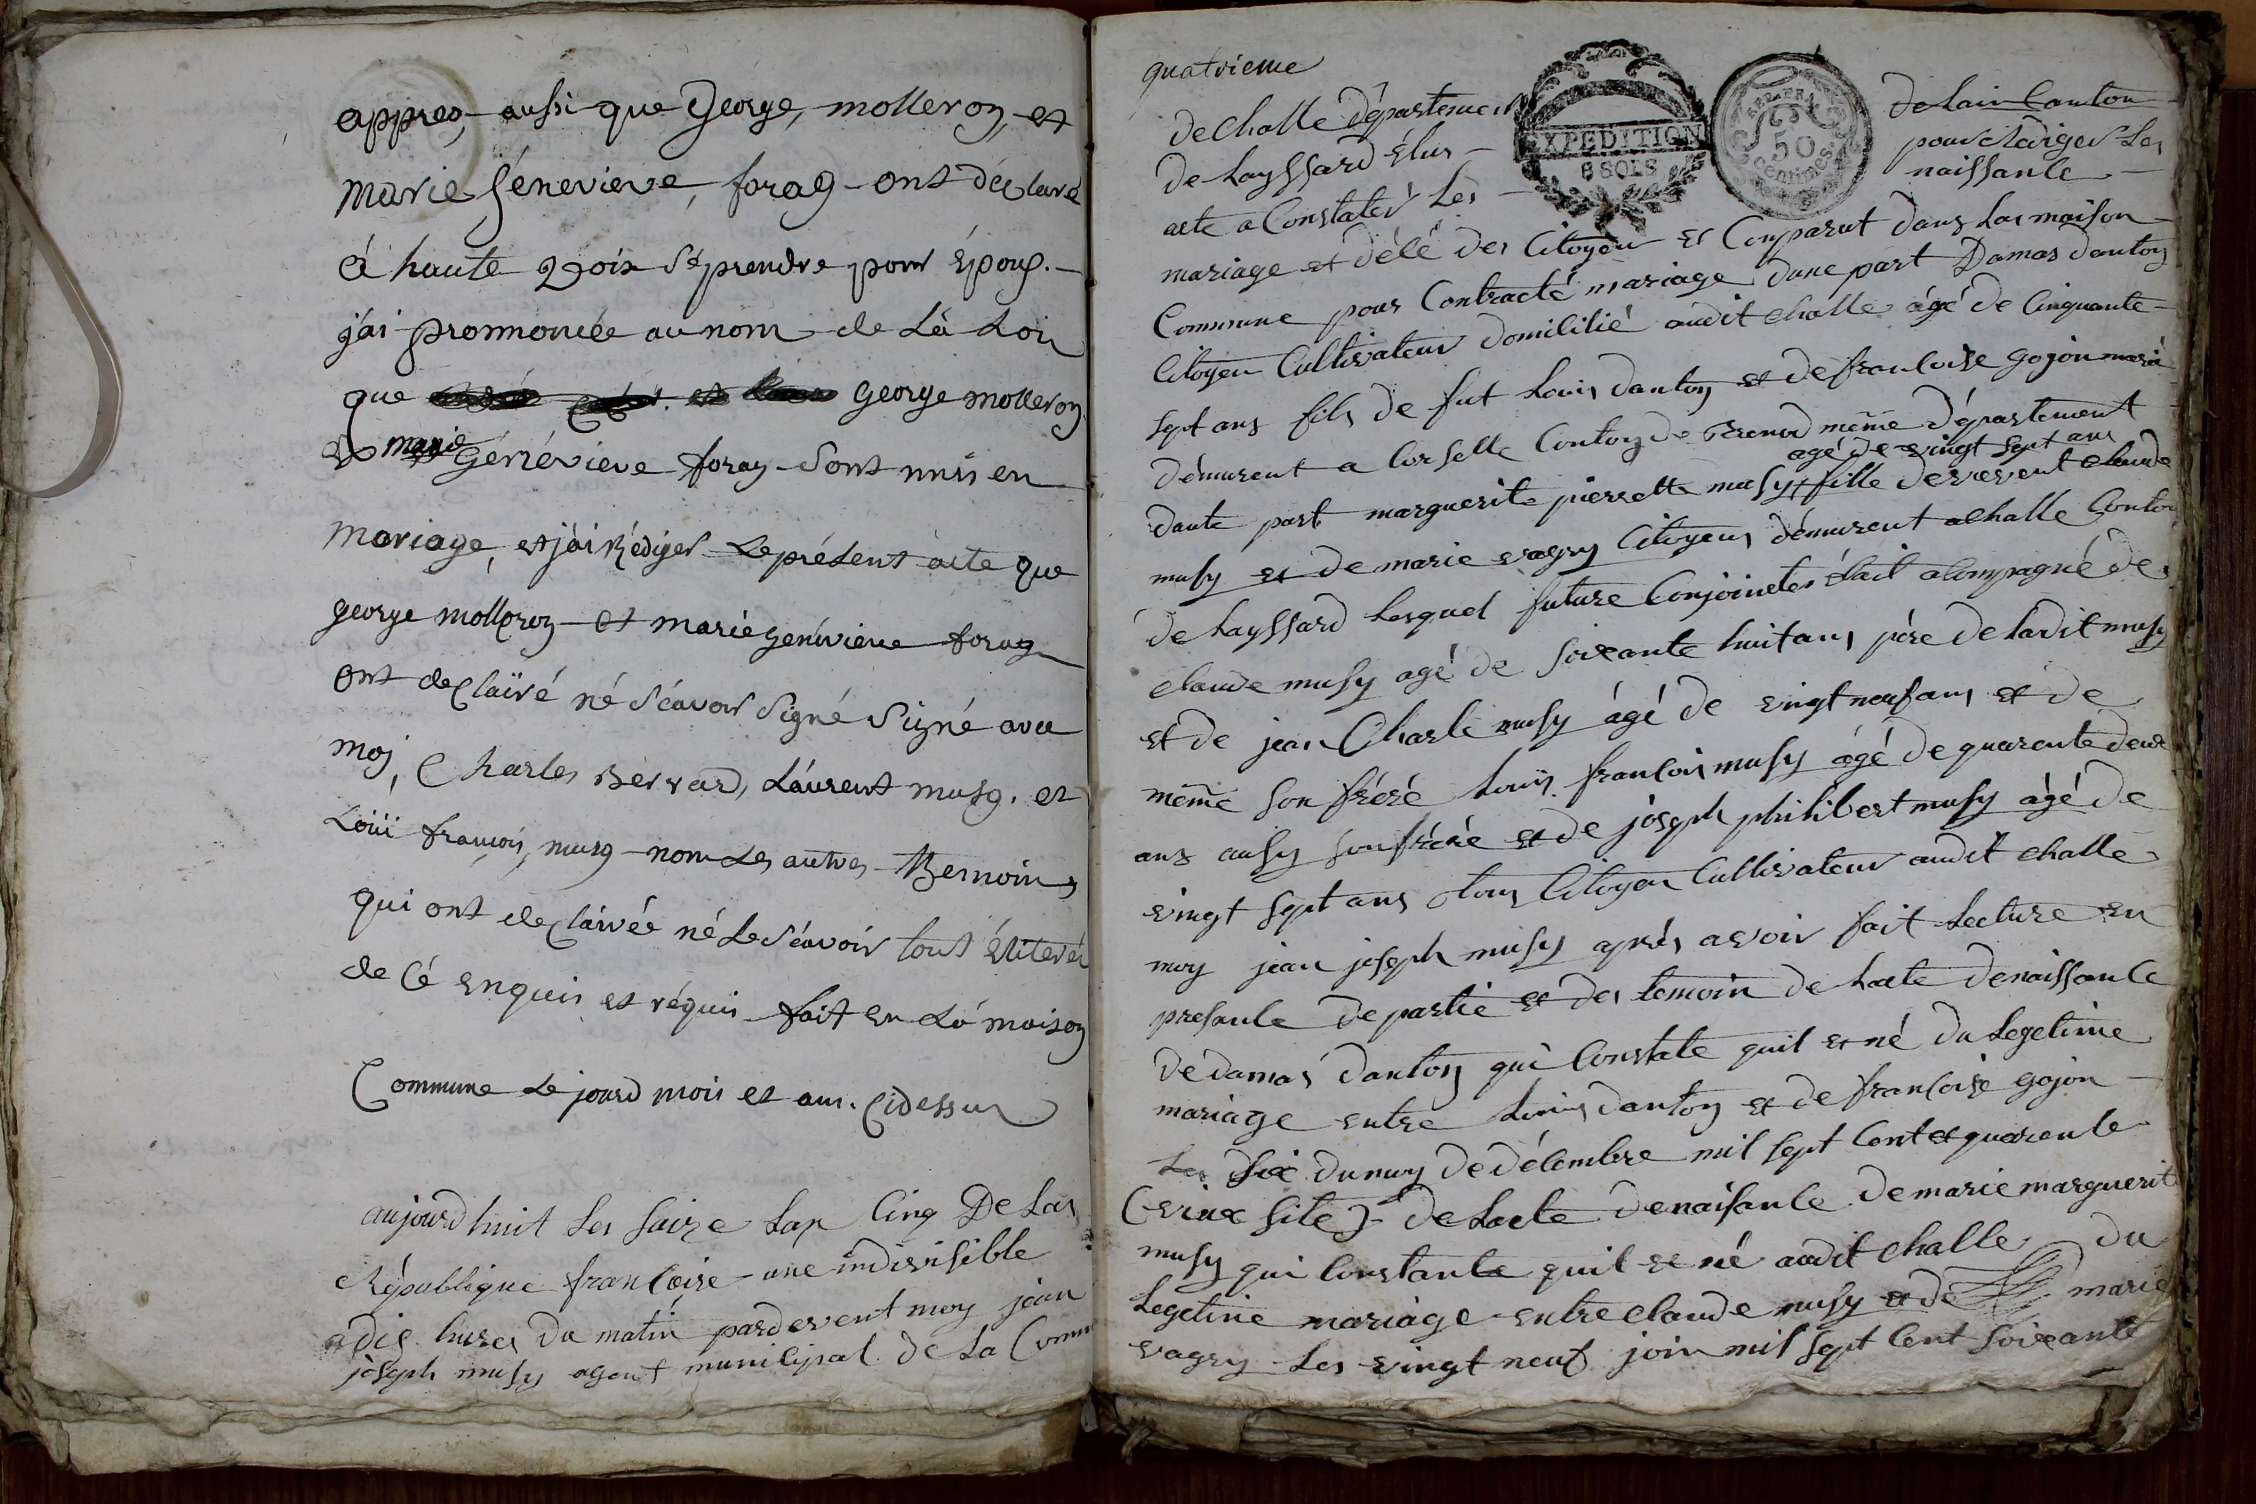 appres, aussi que George, molleron, et
marie Géneviéve, foray ont déclaré
à haute Voix sé prendre pour époux.
j'ai pronnoncée au nom de Là Loi
que George molleron
et marie Génévieve foray sont unis en
mariage, et j'ai Rédiger Le présent acte que
george molleron et marie genévieve foray
ont declairé né sçavoir signé signé avec
moj, Charles Bervard, Laurent musy. et
Loüi françois, musy non Les autres Themoins
qui ont declairée né Le sçavoir tout
de cé enquis et réquis fait en La maison
Commune Le jourd mois et an. Cidessus
aujourd huit Les saize Lan Cinq De Las
République francoise une indivisible
a dix hures Du matin pardevent moy jean
joseph musy agent municipal De La Comm
quatrieme
de challe département de Lain Canton
de Layssard Élus pour rédiger Les
acte a Constater Les naissance
mariage et décé des Citoyen et Comparut dans Las maison
Commune pour Contracté mariage dune part Damas danton
Citoyen Cultivateur domicilié audit challe agé de Cinquante
sept ans fils de fut Louis danton et de francoise gojon marié
démurent a Corselle Conton de Brenod même département
agé de vingt sept ans
daute part marguerite pierrette musy fille devevent claude
musy et de marie vagry Citoyens démurent a challe Conton
de Layssard Lesquel future Conjointes était acompagné de
claude musy agé de soixante huit ans père de Ladit musy
et de jean Charle musy ágé de vingt neuf ans et de
même son fréré Louis françois musy ágé de quarente deux
ans ausy son fréré et de joseph philibert musy ágé de
vingt sept ans tous Citoyen Cultivateur audit challe
moy jean joseph musy aprés avoir fait Lecture en
presance de partie et des temoin de Lacte de naissance
de damas danton qui Constate quil et né du Legetime
mariage entre Louis danton et de françoise gojon
Les dix du moy de décembre mil sept Cent et quarente
(vieux site) de Lacte de naisance de marie marguerit
musy qui Constante quil et né audit challe du
Legetine mariage entre claude musy et de marie
vagry Les vingt neuf join mil sept Cent soixante
EXPEDITION
8 SOLS
50
Centimes